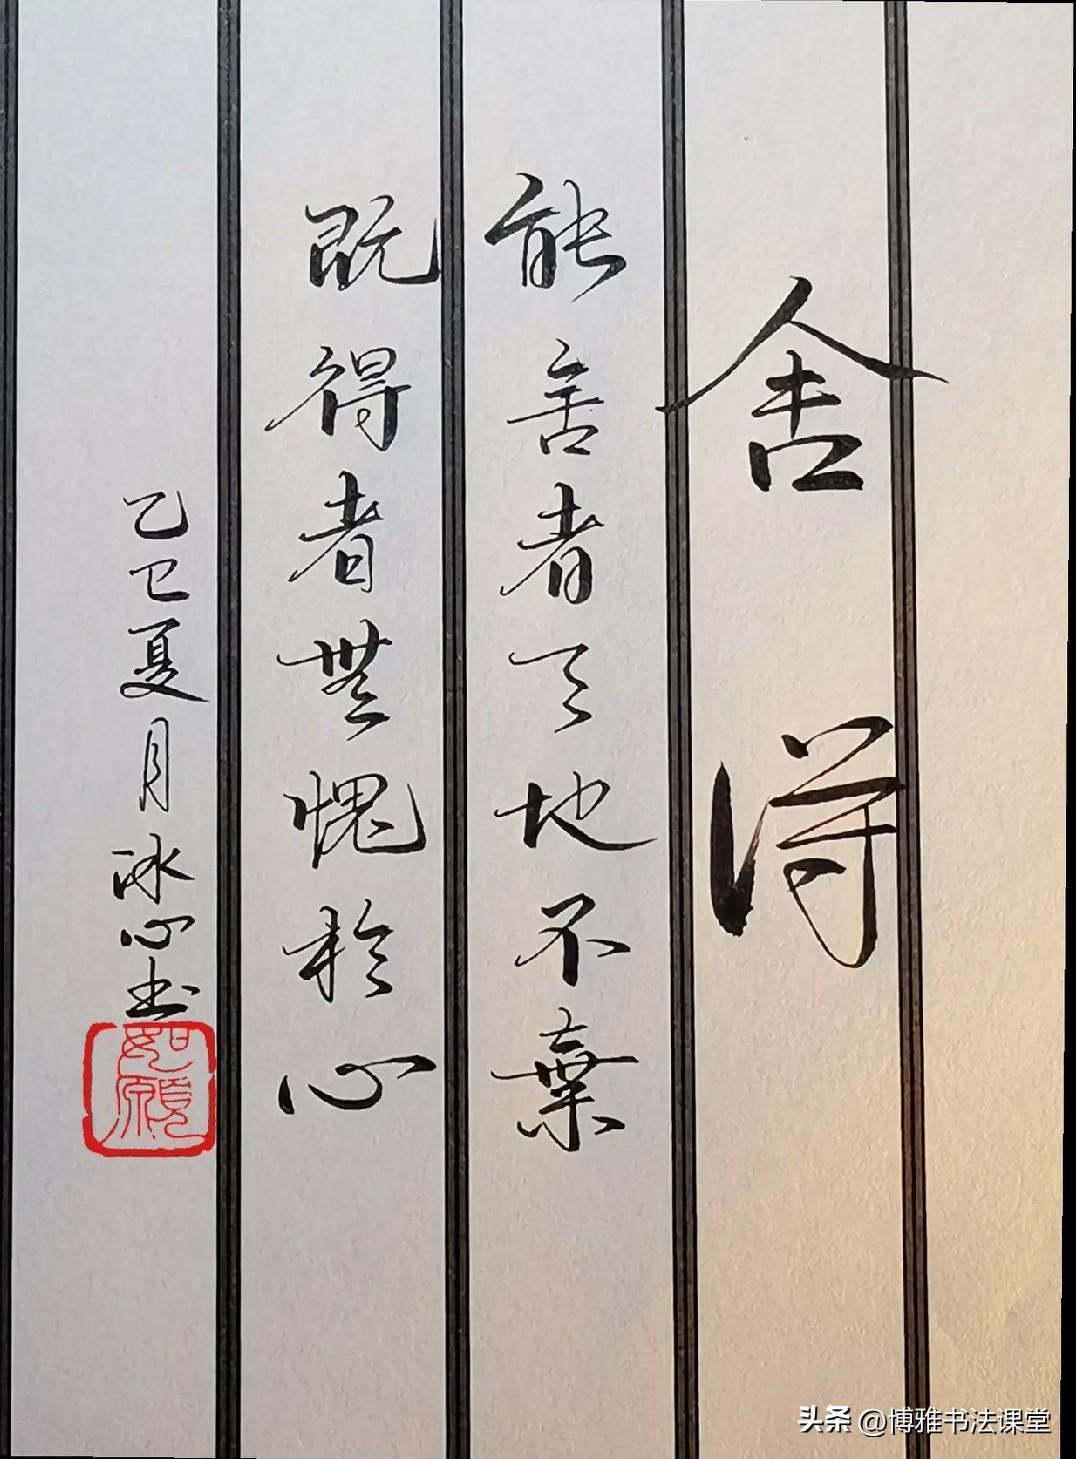 舍得
能舍者天地不棄
既得者無愧於心
乙巳夏月冰心书
如願
头条 @博雅书法课堂